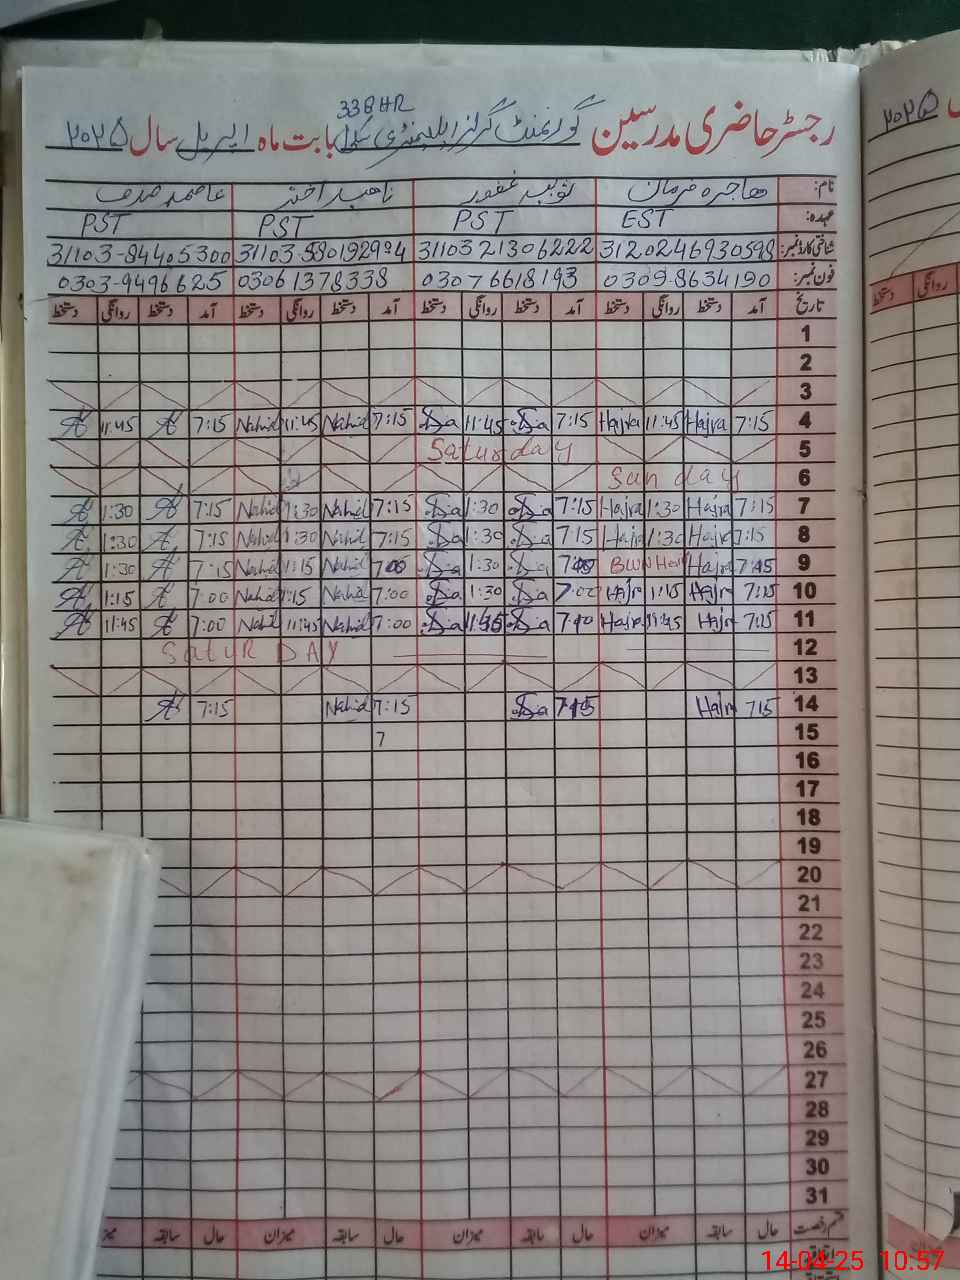 338 HR
رجسٹر حاضری مدرسین گورنمنٹ گرلز ایلیمنٹری سکول بابت ماہ اپریل سال ۲۰۲۵
نام: ہاجرہ فرمان ثوبیہ غفور ناہید اختر عاصمہ صدف
عہدہ: EST PST PST PST
شناختی کارڈ نمبر: 3120246930598 3110321306222 31103-84405300
فون نمبر: 0309-8634190 03076618193 03061378338 0303-9496625
تاریخ آمد دستخط روانگی دستخط آمد دستخط روانگی دستخط آمد دستخط روانگی دستخط آمد دستخط روانگی دستخط
1
2
3
4 7:15 Hajra 11:45 Hajra 7:15 11:45 7:15 Nahid 11:45 Nahid 7:15 11:45
5 Saturday
6 Sunday
7 7:15 Hajra 1:30 Hajra 7:15 1:30 7:15 Nahid 1:30 Nahid 7:15 1:30
8 7:15 Hajra 1:30 Hajra 7:15 1:30 7:15 Nahid 1:30 Nahid 7:15 1:30
9 Hajra BWN 1:30 Nahid 1:15 Nahid 7:15 1:30
10 7:15 Hajr 1:15 Hajr 7:00 1:30 7:00 Nahid 1:15 Nahid 7:00 1:15
11 7:15 Hajr 11:45 Hajra 7:00 Nahid 11:45 Nahid 7:00 11:45
12 SATURDAY
13
14 715 Hajr 7:15 Nahid 7:15
15 7
16
17
18
19
20
21
22
23
24
25
26
27
28
29
30
31
قسم رخصت حال سابقہ میزان حال سابقہ میزان حال سابقہ میزان حال سابقہ
۲۰۲۵
روانگی دستخط
میزان
14-04-25 10:57